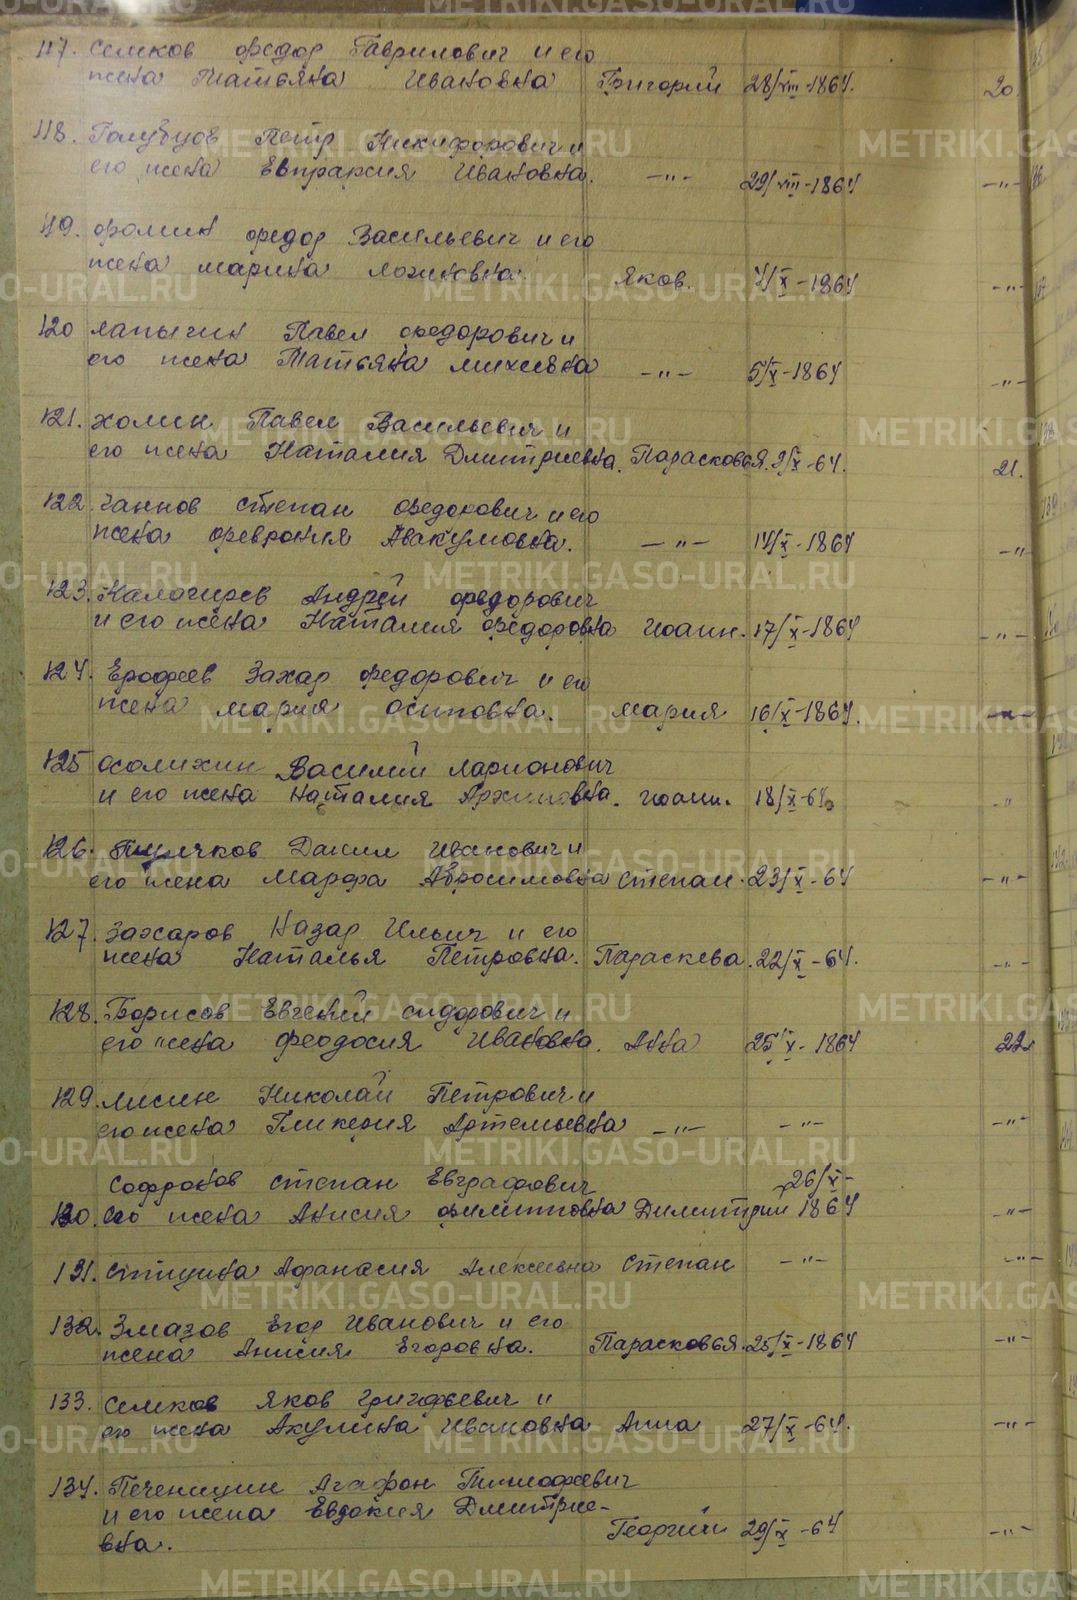 117. Семков Федор Гаврилович и его
жена Татьяна Ивановна Григорий 28/VIII-1864. 20.
118. Голубцов Петр Никифорович и
его жена Евпраксия Ивановна. —"— 29/VIII-1864 —"—
119. Фомин Федор Васильевич и его
жена Марина Логиновна. Яков. 4/X-1864 —"—
120 Лапычин Павел Федорович и
его жена Татьяна Михеевна —"— 5/X-1864 —"—
121. Холин Павел Васильевич и
его жена Наталия Дмитриевна. Парасковья. 2/X-64. 21.
122. Чаннов Степан Федорович и его
жена Феврония Авакумовна. —"— 14/X-1864 —"
123. Калачирев Андрей Федорович
и его жена Наталия Федоровна Иоанн. 17/X-1864 —"—
124. Ерофеев Захар Федорович и его
жена Мария Осиповна. Мария 16/X-1864. —"—
125 Осолихин Василий Ларионович
и его жена Наталия Архиповна. Иоанн. 18/X-64. —"
126. Данил Иванович и
его жена Марфа Абросимовна Степан. 23/X-64 —"—
127. Захаров Назар Ильич и его
жена Наталья Петровна. Параскева. 22/X-64. —"—
128. Борисов Евгений Сидорович и
его жена Феодосия Ивановна. Анна 25/X-1864 22.
129. Лисин Николай Петрович и
его жена Гликерия Артемьевна —"— —"— —"—
Софронов Степан Евграфович 26/X-
130. его жена Анисия Филипповна Димитрий 1864 —"—
131. Афанасия Алексеевна Степан —"— —"—
132. Змазов Егор Иванович и его
жена Анисия Егоровна. Парасковья. 25/X-1864 —"—
133. Семков Яков Григорьевич и
его жена Акулина Ивановна Анна 27/X-64. —"—
134. Печеницин Агафон Тимофеевич
и его жена Евдокия Дмитрие-
вна. Георгий 29/X-64 —"—
METRIKI.GASO-URAL.RU